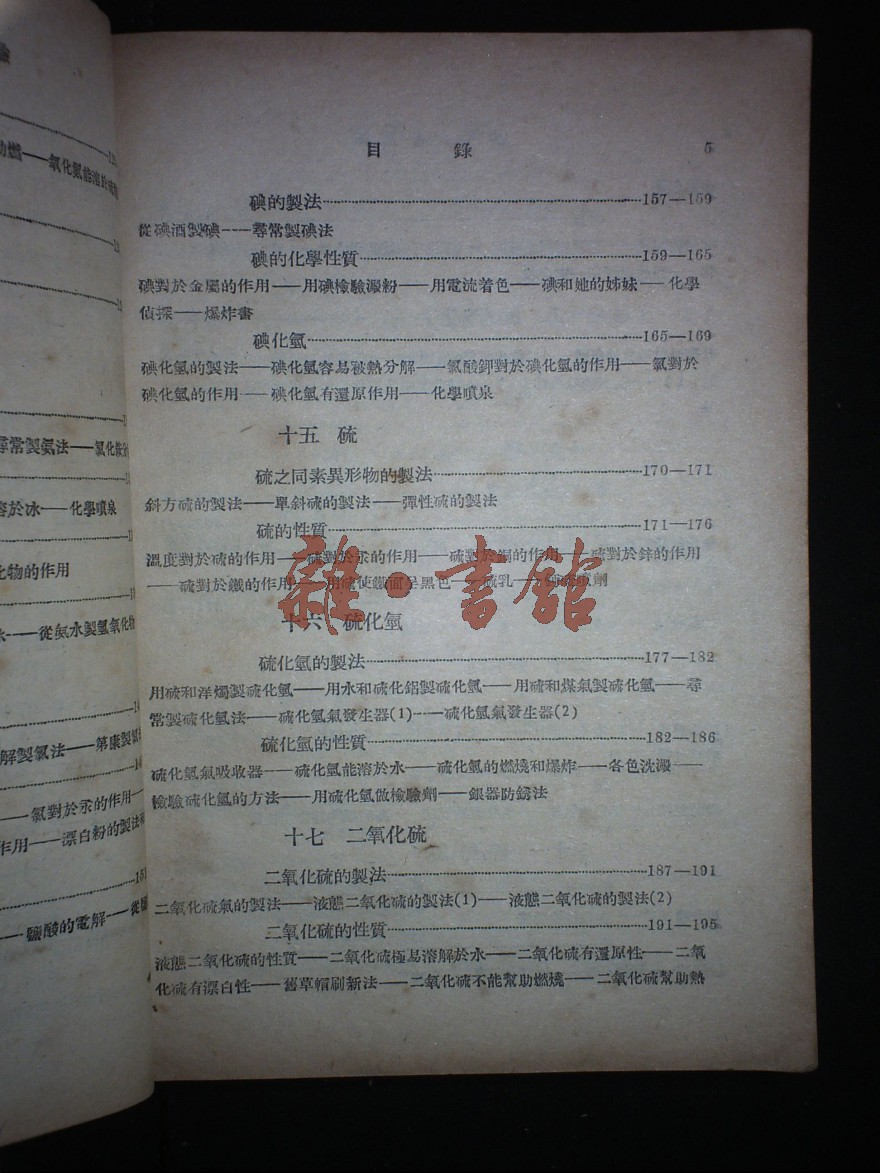 燃——氧化氮能溶於
尋常製氨法——氯化銨分
溶於冰——化學噴泉
化物的作用
——從氨水製氫氧化物
解製氯法——第康製氯
——氯對於汞的作用——
作用——漂白粉的製法
——鹽酸的電解——從
目 錄 5
碘的製法……157—159
從碘酒製碘——尋常製碘法
碘的化學性質……159—165
碘對於金屬的作用——用碘檢驗澱粉——用電流着色——碘和她的姊妹——化學
偵探——爆炸書
碘化氫……165—169
碘化氫的製法——碘化氫容易被熱分解——氯酸鉀對於碘化氫的作用——氯對於
碘化氫的作用——碘化氫有還原作用——化學噴泉
十五 硫
硫之同素異形物的製法……170—171
斜方硫的製法——單斜硫的製法——彈性硫的製法
硫的性質……171—176
溫度對於硫的作用——硫對於汞的作用——硫對於銅的作用——硫對於鋅的作用
——硫對於鐵的作用——用硫使銀面呈黑色——硫乳——
雜·書館
十六 硫化氫
硫化氫的製法……177—182
用硫和洋燭製硫化氫——用水和硫化鋁製硫化氫——用硫和煤氣製硫化氫——尋
常製硫化氫法——硫化氫氣發生器(1)——硫化氫氣發生器(2)
硫化氫的性質……182—186
硫化氫氣吸收器——硫化氫能溶於水——硫化氫的燃燒和爆炸——各色洗澱——
檢驗硫化氫的方法——用硫化氫做檢驗劑——銀器防銹法
十七 二氧化硫
二氧化硫的製法……187—191
二氧化硫氣的製法——液態二氧化硫的製法(1)——液態二氧化硫的製法(2)
二氧化硫的性質……191—195
液態二氧化硫的性質——二氧化硫極易溶解於水——二氧化硫有還原性——二氧
化硫有漂白性——舊草帽刷新法——二氧化硫不能幫助燃燒——二氧化硫幫助熱